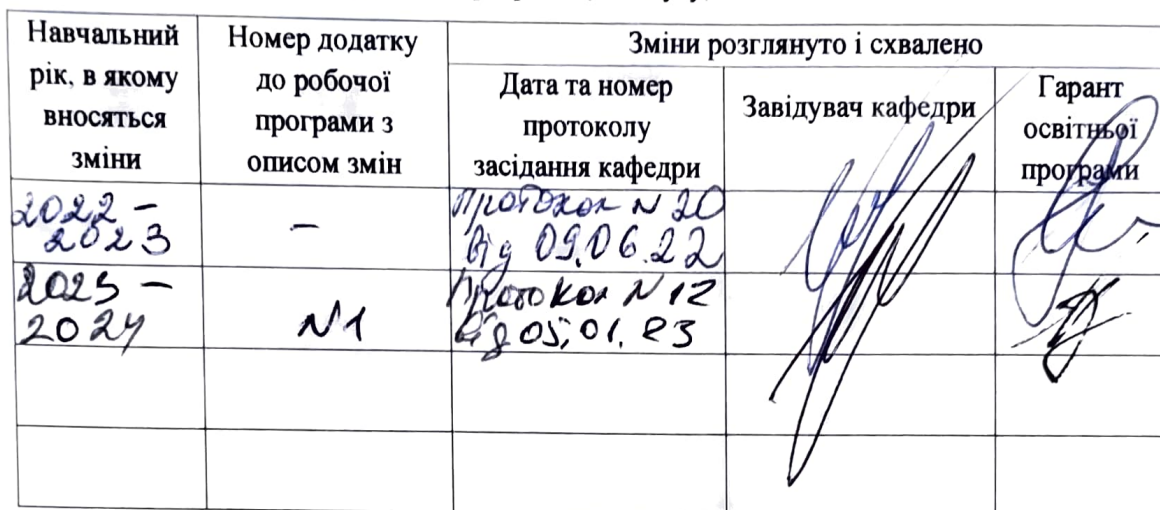 Навчальний
рік, в якому
вносяться
зміни
Номер додатку
до робочої
програми з
описом змін
Зміни розглянуто і схвалено
Дата та номер
протоколу
засідання кафедри
Завідувач кафедри
Гарант
освітньої
програми
2022 –
2023
–
Протокол N 20
від 09.06.22
2023 –
2024
N1
Протокол N 12
від 05.01.23